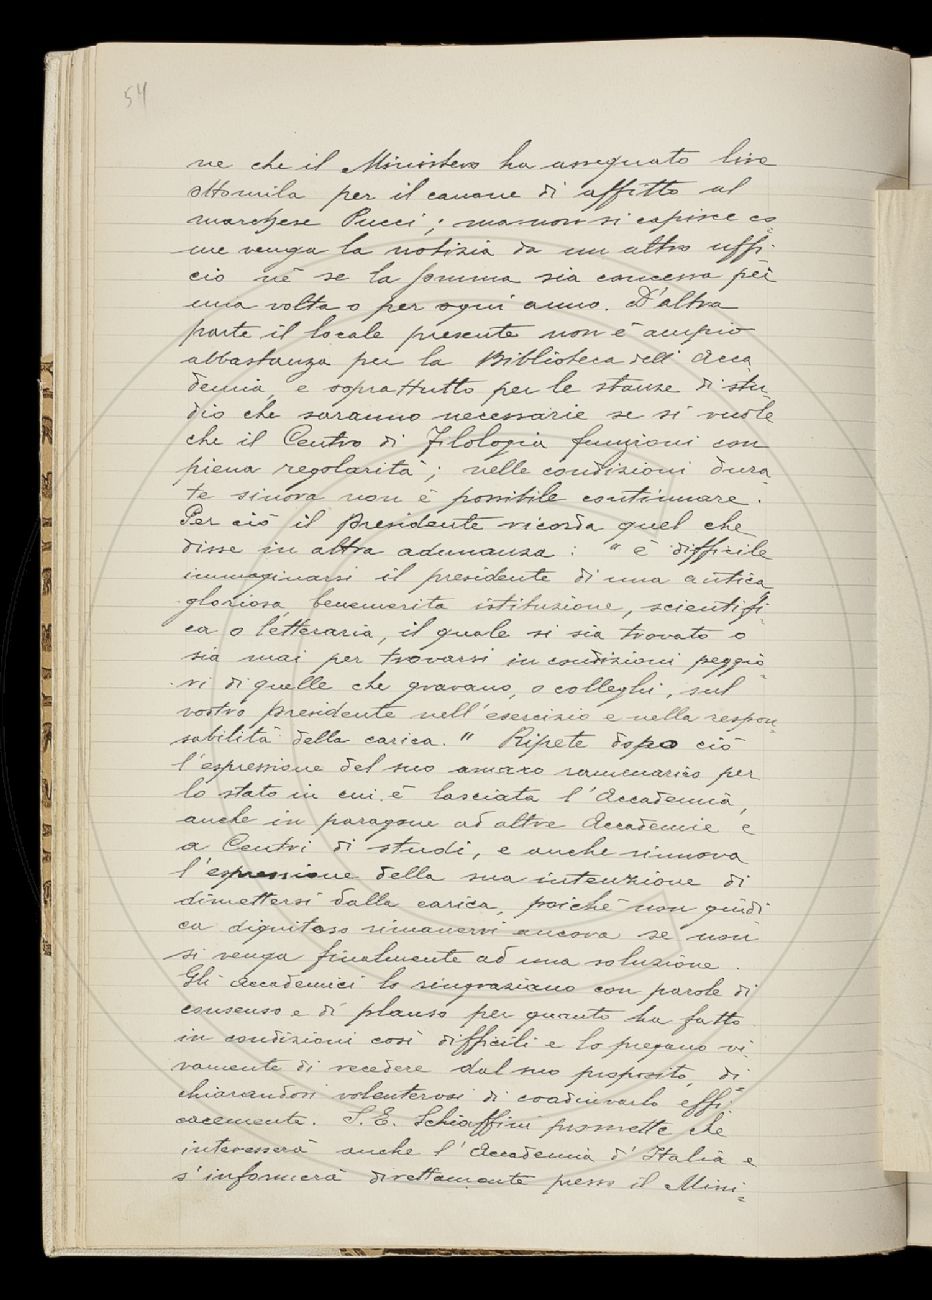 54
ne che il Ministero ha assegnato lire
ottomila per il canone di affitto al
marchese Pucci; ma non si capisce co=
me venga la notizia da un altro uffi=
cio nè se la somma sia concessa per
una volta o per ogni anno. D'altra
parte il locale presente non è ampio
abbastanza per la Biblioteca dell'Acca
demia, e soprattutto per le stanze di stu
dio che saranno necessarie se si vuole
che il Centro di Filologia funzioni con
piena regolarità; nelle condizioni dura
te sinora non è possibile continuare.
Per ciò il presidente ricorda quel che
disse in altra adunanza: "è difficile
immaginarsi il presidente di una antica
gloriosa, benemerita istituzione, scientifi=
ca o letteraria, il quale si sia trovato o
sia mai per trovarsi in condizioni peggio=
ri di quelle che gravano, o colleghi, sul
vostro presidente nell'esercizio e nella respon=
sabilità della carica." Ripete dopo ciò
l'espressione del suo amaro rammarico per
lo stato in cui è lasciata l'Accademia,
anche in paragone ad altre Accademie e
a Centri di studi, e anche rinnova
l'espressione della sua intenzione di
dimettersi dalla carica, poichè non giudi
ca dignitoso rimanervi ancora se non
si venga finalmente ad una soluzione.
Gli Accademici lo ringraziano con parole di
consenso e di plauso per quanto ha fatto
in condizioni così difficili e lo pregano vi
vamente di recedere dal suo proposito, di=
chiarandosi volenterosi di coadiuvarlo effi=
cacemente. S.E. Schiaffini promette che
interesserà anche l'Accademia d'Italia e
s'informerà direttamente presso il Mini=